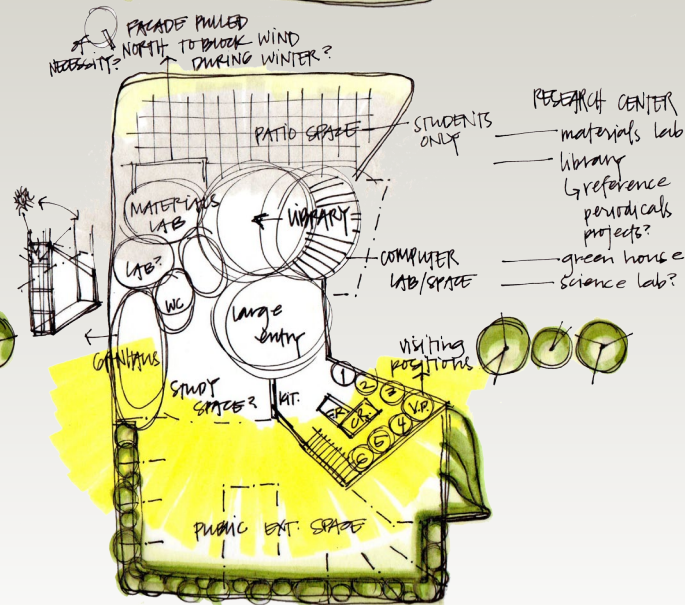 FACADE PULLED
NORTH TO BLOCK WIND
DURING WINTER?
NECESSITY?
PATIO SPACE
STUDENTS
ONLY
RESEARCH CENTER
materials lab
library
reference
periodicals
projects?
green house
science lab?
MATERIALS
LAB
LIBRARY
COMPUTER
LAB/SPACE
LAB?
WC
Large
entry
visiting
positions
STUDY
SPACE?
KIT.
1
2
3
V.P.
4
5
6
PUBLIC EXT. SPACE